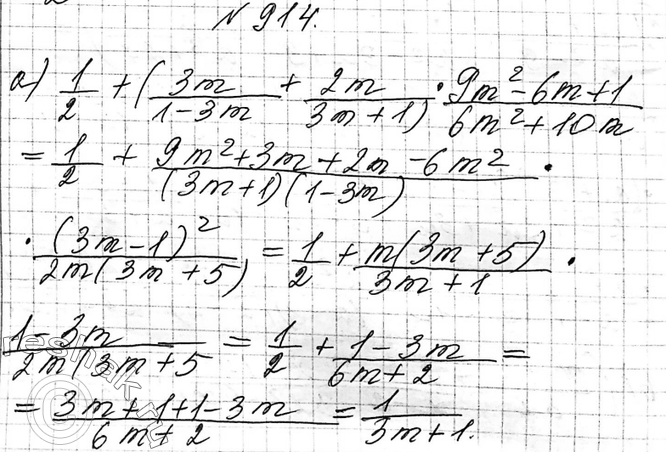 № 914.
а) 1/2 + (3m/(1-3m) + 2m/(3m+1)) · (9m²-6m+1)/(6m²+10m)
= 1/2 + (9m²+3m+2m-6m²)/((3m+1)(1-3m)) ·
· (3m-1)²/(2m(3m+5)) = 1/2 + m(3m+5)/(3m+1) ·
(1-3m)/(2m(3m+5) = 1/2 + (1-3m)/(6m+2) =
= (3m+1+1-3m)/(6m+2) = 1/(3m+1).